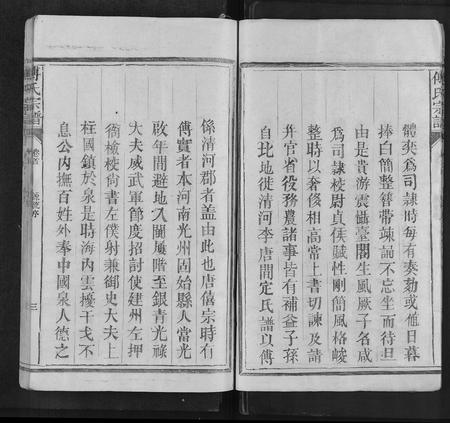 傅氏宗譜
體奕爲司隸時每有奏劾或值日暮
捧白簡整簪帶竦誦不忘坐而待旦
由是貴游震懾臺閣生風厥子名咸
爲司隸校尉貞侯賦性剛簡風格峻
整時以奢侈相高常上書切諫及請
并官省役務農諸事皆有補益子孫
自北地徙清河李唐間定氏譜以傅
係清河郡者蓋由此也唐僖宗時有
傅實者本河南光州固始縣人當光
啟年間避地入閩屢階至銀青光祿
大夫威武軍節度招討使建州左押
衙檢校尚書左僕射兼御史大夫上
柱國鎮於泉是時海內雲擾干戈不
息公內撫百姓外奉中國泉人德之
傅氏宗譜
卷首
三